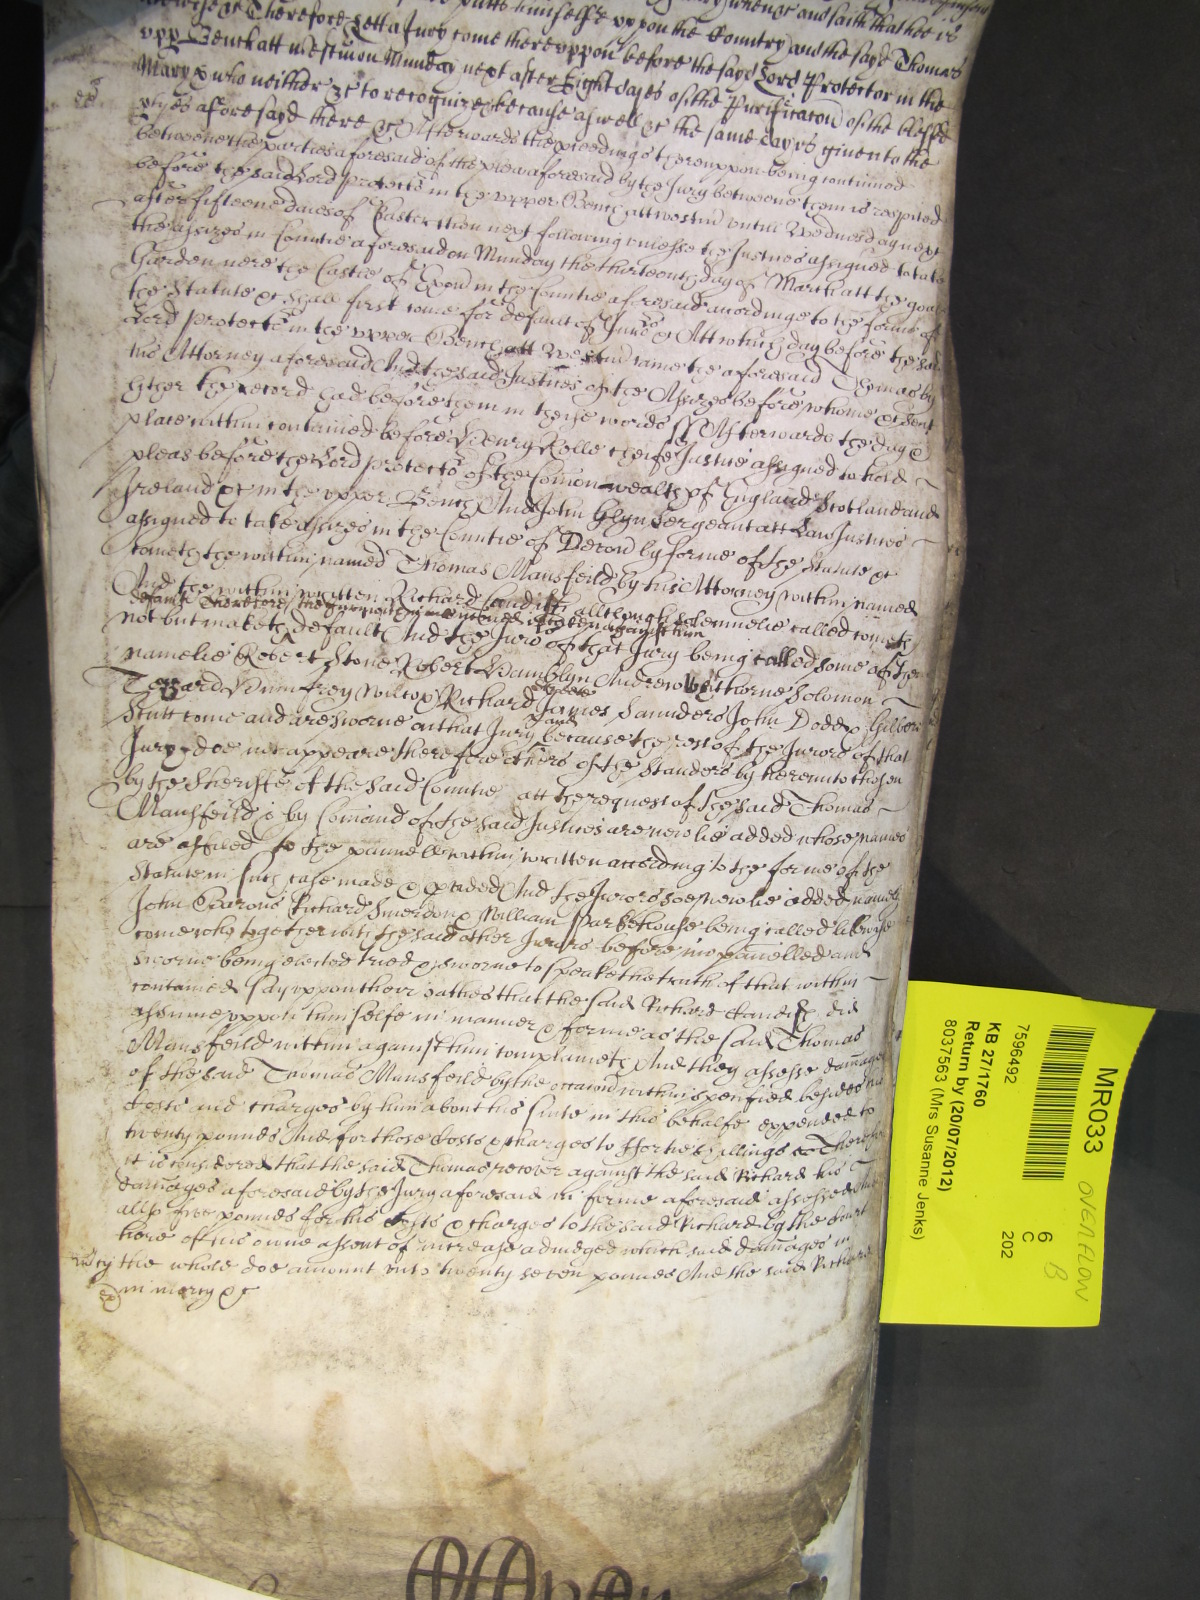 putts himselfe uppon the Country and saith that hee is
Therefore lett a Jury come thereuppon before the sayd Lord Protector in the
upp Bench att Westm on Munday next after Eight dayes of the Purificacon of the blessed
Mary & who neither &c to recognize & because aswell &c the same day is given to the
ptyes aforesayd there &c Afterwards the pceedings thereuppon being continued
betweene the parties aforesaid of the plea aforesaid by the Jury betweene them is respited
before the said Lord Protector in the upper Bench att Westm untill Wednesday next
after fifteene daies of Easter then next following unlesse the Justices assigned to take
the assizes in Countie aforesaid on Munday the thirteenth day of March att the goale
Garden nere the Castle of Exon in the Countie aforesaid accordinge to the forme of
the Statute &c shall first come for default of Jurors &c Att which day before the said
Lord Protector in the upper Bench att Westm came the aforesaid Thomas by
his Attorney aforesaid And the said Justices of the Assizes before whome &c sent
hither the record had before them in theise words ss Afterwards the day &
place within contained before Henry Rolle cheife Justice assigned to hold
pleas before the Lord Protector of the Comonwealth of England Scotland and
Ireland &c in the upper Bench And John Glyn Sergeant att Law Justices
assigned to take assizes in the Countie of Devon by forme of the Statute &c
cometh the within named Thomas Mansfeild by his Attorney within named
And the within written Richard although solemnelie called cometh
default Therefore the against him
not but maketh default And the Jurors of that Jury being called some of them
namelie Robert Stone Robert Hamblyn Andrew Whithorne Solomon
Humfrey Wilcox Richard James Saunders John Dodd & Gilbert
and
Stutt come and are sworne on that Jury because the rest of the Jurors of that
Jury doe not appeare therefore others of the Standers by hereunto chosen
by the Sheriffe of the said Countie att the request of the said Thomas
Mansfeild & by Comand of the said Justices are newlie added whose names
are affiled to the pannell within written according to the forme of the
Statute in such case made & pvided And the Jurors soe newlie added namely
John Barons Richard Smerdon & William Parkehouse being called likewise
come who together with the said other Jurors before impanelled and
sworne being elected tried & sworne to speake the truth of that within
contained say uppon their oathes that the said Richard did
assume uppon himselfe in manner & forme as the said Thomas
Mansfeild within against him complaineth And they assesse damages
of the said Thomas Mansfeild by the occasion within specified besides his
Costs and charges by him about his suite in this behalfe expended to
twenty pounds And for those Costs & charges to fortie shillings Therefore
it is considered that the said Thomas recover against the said Richard his
damages aforesaid by the Jury aforesaid in forme aforesaid assessed And
alsoe five pounds for his Costs & charges to the said Richard by the Court
here of his owne assent of increase adiudged which said damages in
the whole doe amount unto twenty seven pounds And the said Richard
in mercy &c
MR033
OVERFLOW
B
6
C
202
7596492
KB 27/1760
Return by (20/07/2012)
8037563 (Mrs Susanne Jenks)